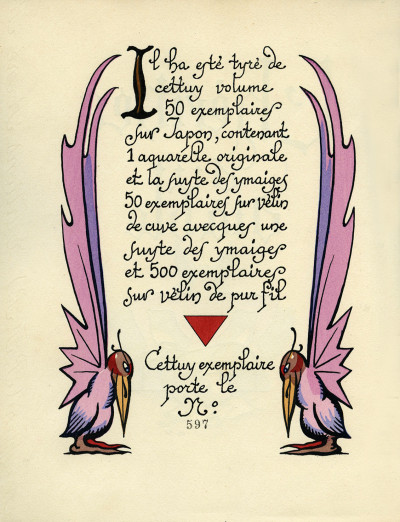 Il ha esté tyré de
cettuy volume
50 exemplaires
sur Japon, contenant
1 aquarelle originale
et la suyte des ymaiges
50 exemplaires sur vélin
de cuve avecques une
suyte des ymaiges
et 500 exemplaires
sur vélin de pur fil
Cettuy exemplaire
porte le
No:
597